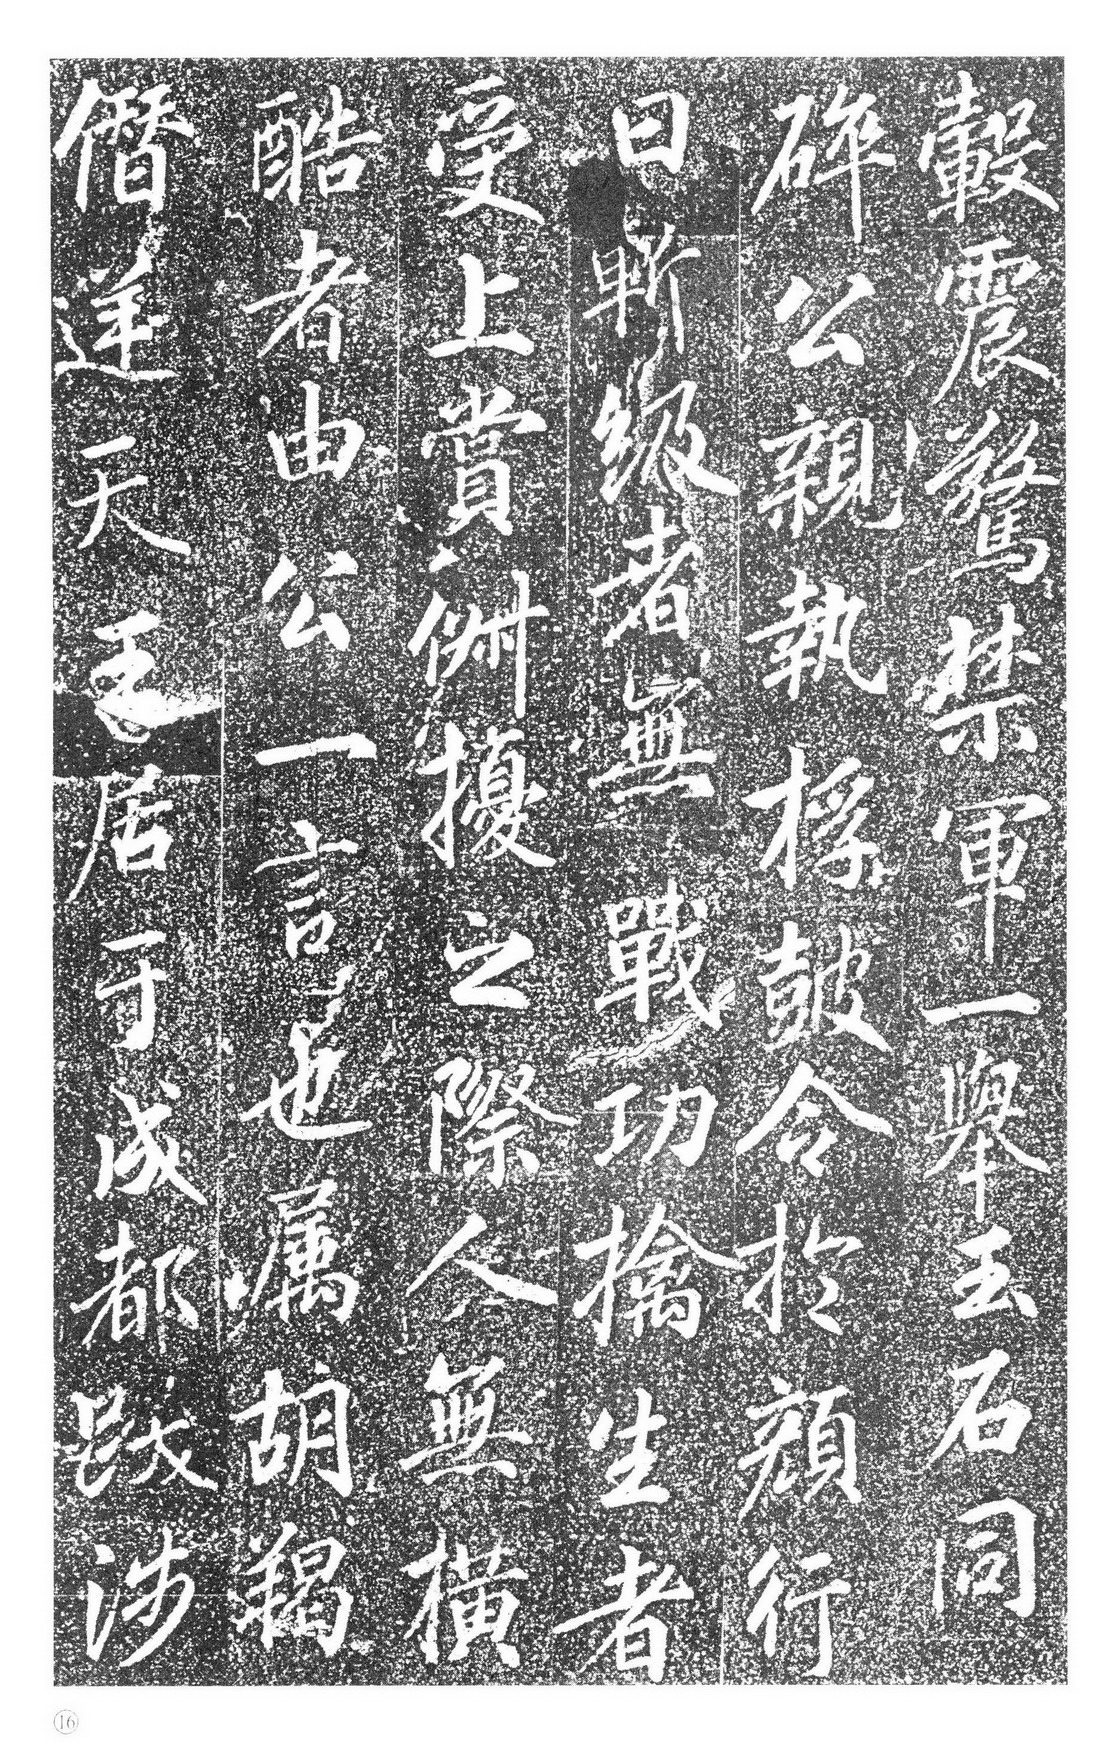 轂震驚禁軍一舉玉石同
碎公親執桴皷令於顏行
曰斬級者無戰功擒生者
受上賞俶擾之際人無橫
酷者由公一言也属胡羯
僭逆天王居于成都跋涉
16